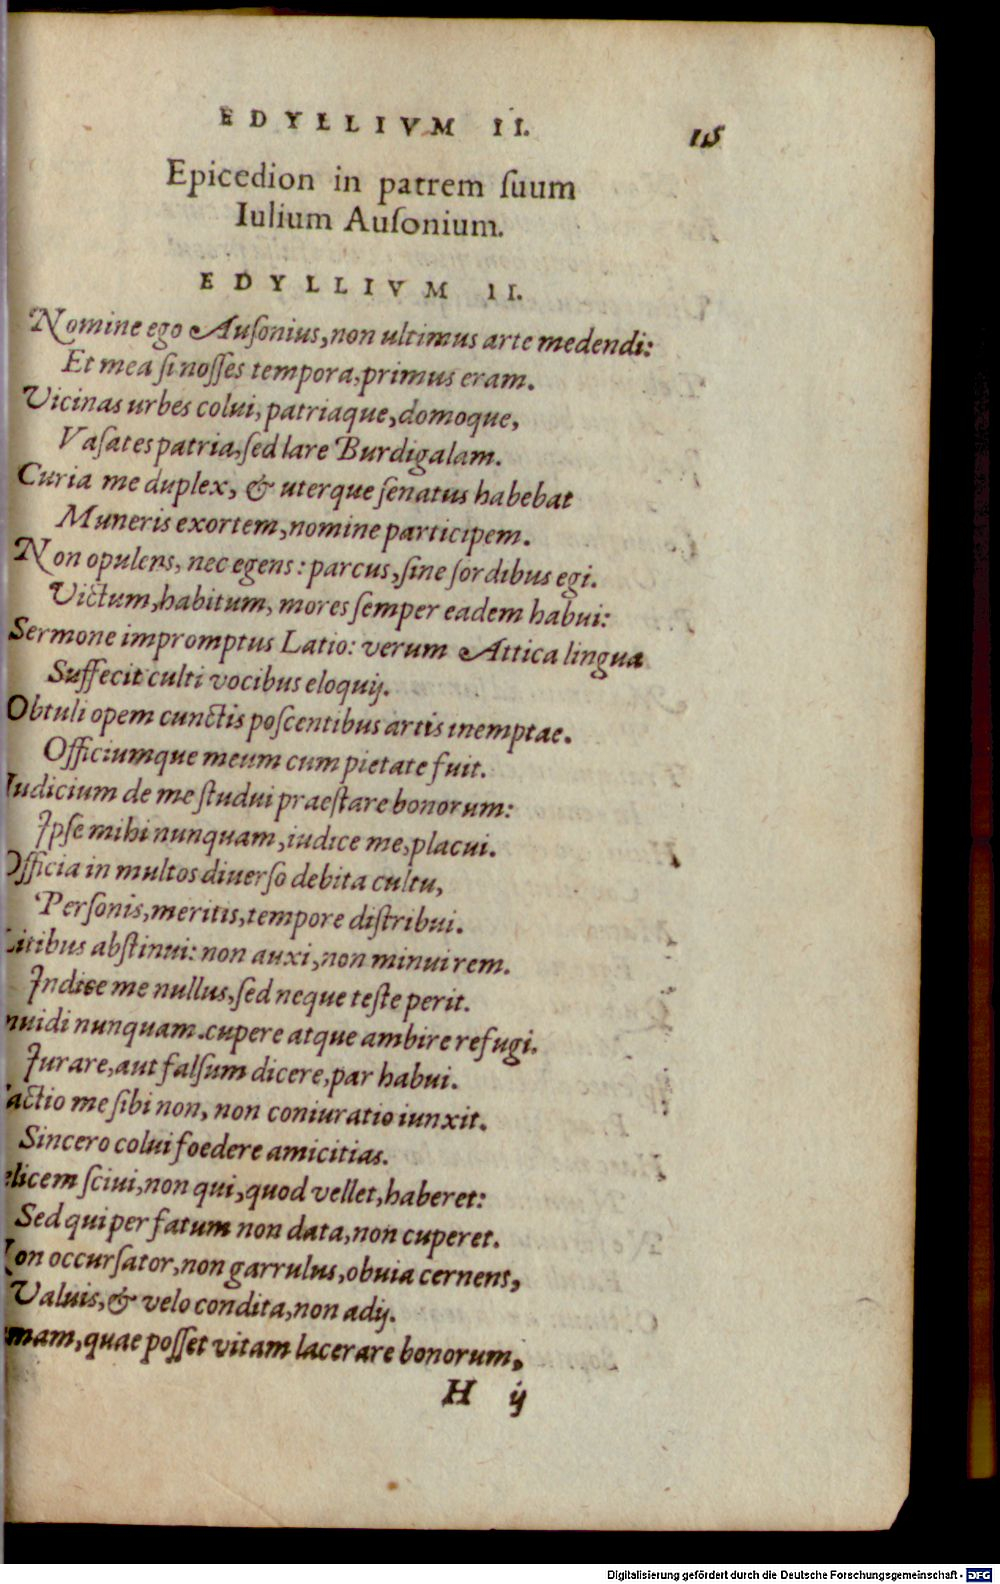 EDYLLIVM II. 115
Epicedion in patrem ſuum
Iulium Auſonium.
EDYLLIVM II.
Nomine ego Auſonius, non ultimus arte medendi:
Et mea ſi noſſes tempora, primus eram.
Vicinas urbes colui, patriaque, domoque,
Vaſates patria, ſed lare Burdigalam.
Curia me duplex, & uterque ſenatus habebat
Muneris exortem, nomine participem.
Non opulens, nec egens: parcus, ſine ſordibus egi.
Victum, habitum, mores ſemper eadem habui:
Sermone impromptus Latio: verum Attica lingua
Suffecit culti vocibus eloquij.
Obtuli opem cunctis poſcentibus artis inemptae.
Officiumque meum cum pietate fuit.
Iudicium de me ſtudui praeſtare bonorum:
Ipſe mihi nunquam, iudice me, placui.
Officia in multos diuerſo debita cultu,
Perſonis, meritis, tempore diſtribui.
Litibus abſtinui: non auxi, non minui rem.
Indice me nullus, ſed neque teſte perit.
nuidi nunquam. cupere atque ambire refugi.
Iurare, aut falſum dicere, par habui.
actio me ſibi non, non coniuratio iunxit.
Sincero colui foedere amicitias.
elicem ſciui, non qui, quod vellet, haberet:
Sed qui per fatum non data, non cuperet.
Non occurſator, non garrulus, obuia cernens,
Valuis, & velo condita, non adij.
mam, quae poſſet vitam lacerare bonorum,
H ij
Digitalisierung gefördert durch die Deutsche Forschungsgemeinschaft - DFG